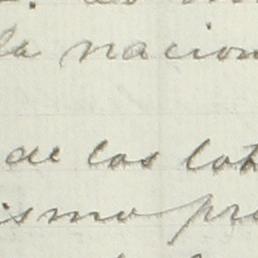 la nacion
de los lot
ismo pro